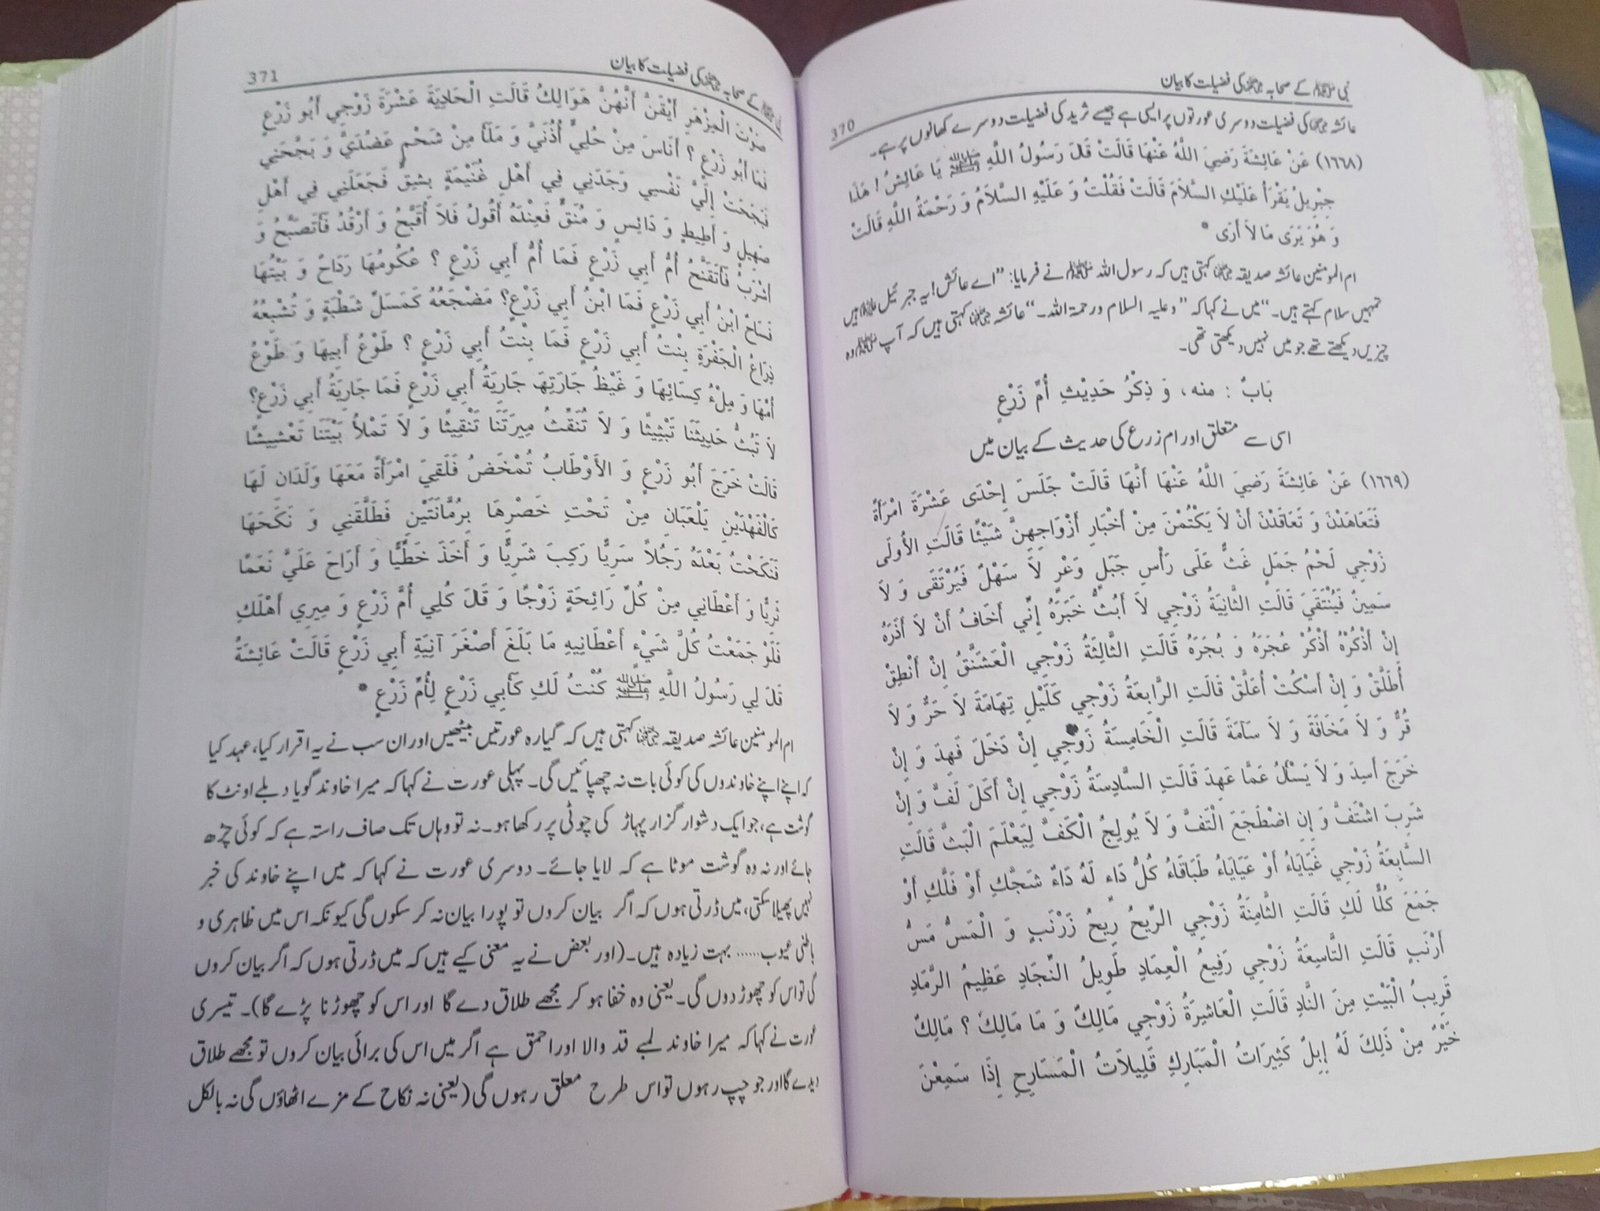 نبی ﷺ کے صحابہ رضی اللہ عنہم کی فضیلت کا بیان
370
عائشہ رضی اللہ عنہا کی فضیلت دوسری عورتوں پر ایسی ہے جیسے ثرید کی فضیلت دوسرے کھانوں پر ہے۔
(١٦٦٨) عَنْ عَائِشَةَ رَضِيَ اللَّهُ عَنْهَا قَالَتْ قَالَ رَسُولُ اللَّهِ ﷺ يَا عَائِشُ ! هَذَا
جِبْرِيلُ يَقْرَأُ عَلَيْكِ السَّلاَمَ قَالَتْ فَقُلْتُ وَ عَلَيْهِ السَّلاَمُ وَ رَحْمَةُ اللَّهِ قَالَتْ
وَ هُوَ يَرَى مَا لاَ أَرَى *
ام المومنین عائشہ صدیقہ رضی اللہ عنہا کہتی ہیں کہ رسول اللہ ﷺ نے فرمایا: ’’اے عائش! یہ جبرئیل علیہ السلام ہیں
تمہیں سلام کہتے ہیں۔‘‘ میں نے کہا کہ ’’وعلیہ السلام ورحمۃ اللہ۔‘‘ عائشہ رضی اللہ عنہا کہتی ہیں کہ آپ ﷺ وہ
چیزیں دیکھتے تھے جو میں نہیں دیکھتی تھی۔
بَابٌ : منه، وَ ذِكْرُ حَدِيْثِ أُمِّ زَرْعٍ
اسی سے متعلق اور ام زرع کی حدیث کے بیان میں
(١٦٦٩) عَنْ عَائِشَةَ رَضِيَ اللَّهُ عَنْهَا أَنَّهَا قَالَتْ جَلَسَ إِحْدَى عَشْرَةَ امْرَأَةً
فَتَعَاهَدْنَ وَ تَعَاقَدْنَ أَنْ لاَ يَكْتُمْنَ مِنْ أَخْبَارِ أَزْوَاجِهِنَّ شَيْئًا قَالَتِ الأُولَى
زَوْجِي لَحْمُ جَمَلٍ غَثٌّ عَلَى رَأْسِ جَبَلٍ وَعْرٍ لاَ سَهْلٌ فَيُرْتَقَى وَ لاَ
سَمِينٌ فَيُنْتَقَى قَالَتِ الثَّانِيَةُ زَوْجِي لاَ أَبُثُّ خَبَرَهُ إِنِّي أَخَافُ أَنْ لاَ أَذَرَهُ
إِنْ أَذْكُرْهُ أَذْكُرْ عُجَرَهُ وَ بُجَرَهُ قَالَتِ الثَّالِثَةُ زَوْجِي الْعَشَنَّقُ إِنْ أَنْطِقْ
أُطَلَّقْ وَ إِنْ أَسْكُتْ أُعَلَّقْ قَالَتِ الرَّابِعَةُ زَوْجِي كَلَيْلِ تِهَامَةَ لاَ حَرٌّ وَ لاَ
قُرٌّ وَ لاَ مَخَافَةَ وَ لاَ سَآمَةَ قَالَتِ الْخَامِسَةُ زَوْجِي إِنْ دَخَلَ فَهِدَ وَ إِنْ
خَرَجَ أَسِدَ وَ لاَ يَسْأَلُ عَمَّا عَهِدَ قَالَتِ السَّادِسَةُ زَوْجِي إِنْ أَكَلَ لَفَّ وَ إِنْ
شَرِبَ اشْتَفَّ وَ إِنِ اضْطَجَعَ الْتَفَّ وَ لاَ يُولِجُ الْكَفَّ لِيَعْلَمَ الْبَثَّ قَالَتِ
السَّابِعَةُ زَوْجِي غَيَايَاءُ أَوْ عَيَايَاءُ طَبَاقَاءُ كُلُّ دَاءٍ لَهُ دَاءٌ شَجَّكِ أَوْ فَلَّكِ أَوْ
جَمَعَ كُلًّا لَكِ قَالَتِ الثَّامِنَةُ زَوْجِي الرِّيحُ رِيحُ زَرْنَبٍ وَ الْمَسُّ مَسُّ
أَرْنَبٍ قَالَتِ التَّاسِعَةُ زَوْجِي رَفِيعُ الْعِمَادِ طَوِيلُ النِّجَادِ عَظِيمُ الرَّمَادِ
قَرِيبُ الْبَيْتِ مِنَ النَّادِ قَالَتِ الْعَاشِرَةُ زَوْجِي مَالِكٌ وَ مَا مَالِكٌ ؟ مَالِكٌ
خَيْرٌ مِنْ ذَلِكَ لَهُ إِبِلٌ كَثِيرَاتُ الْمَبَارِكِ قَلِيلاَتُ الْمَسَارِحِ إِذَا سَمِعْنَ
کے صحابہ رضی اللہ عنہم کی فضیلت کا بیان
371
صَوْتَ الْمِزْهَرِ أَيْقَنَّ أَنَّهُنَّ هَوَالِكُ قَالَتِ الْحَادِيَةَ عَشْرَةَ زَوْجِي أَبُو زَرْعٍ
فَمَا أَبُو زَرْعٍ ؟ أَنَاسَ مِنْ حُلِيٍّ أُذُنَيَّ وَ مَلَأَ مِنْ شَحْمٍ عَضُدَيَّ وَ بَجَّحَنِي
فَبَجَحَتْ إِلَيَّ نَفْسِي وَجَدَنِي فِي أَهْلِ غُنَيْمَةٍ بِشِقٍّ فَجَعَلَنِي فِي أَهْلِ
صَهِيلٍ وَ أَطِيطٍ وَ دَائِسٍ وَ مُنَقٍّ فَعِنْدَهُ أَقُولُ فَلاَ أُقَبَّحُ وَ أَرْقُدُ فَأَتَصَبَّحُ وَ
أَشْرَبُ فَأَتَقَنَّحُ أُمُّ أَبِي زَرْعٍ فَمَا أُمُّ أَبِي زَرْعٍ ؟ عُكُومُهَا رَدَاحٌ وَ بَيْتُهَا
فَسَاحٌ ابْنُ أَبِي زَرْعٍ فَمَا ابْنُ أَبِي زَرْعٍ؟ مَضْجَعُهُ كَمَسَلِّ شَطْبَةٍ وَ تُشْبِعُهُ
ذِرَاعُ الْجَفْرَةِ بِنْتُ أَبِي زَرْعٍ فَمَا بِنْتُ أَبِي زَرْعٍ ؟ طَوْعُ أَبِيهَا وَ طَوْعُ
أُمِّهَا وَ مِلْءُ كِسَائِهَا وَ غَيْظُ جَارَتِهَا جَارِيَةُ أَبِي زَرْعٍ فَمَا جَارِيَةُ أَبِي زَرْعٍ؟
لاَ تَبُثُّ حَدِيثَنَا تَبْثِيثًا وَ لاَ تُنَقِّثُ مِيرَتَنَا تَنْقِيثًا وَ لاَ تَمْلأُ بَيْتَنَا تَعْشِيشًا
قَالَتْ خَرَجَ أَبُو زَرْعٍ وَ الأَوْطَابُ تُمْخَضُ فَلَقِيَ امْرَأَةً مَعَهَا وَلَدَانِ لَهَا
كَالْفَهْدَيْنِ يَلْعَبَانِ مِنْ تَحْتِ خَصْرِهَا بِرُمَّانَتَيْنِ فَطَلَّقَنِي وَ نَكَحَهَا
فَنَكَحْتُ بَعْدَهُ رَجُلاً سَرِيًّا رَكِبَ شَرِيًّا وَ أَخَذَ خَطِّيًّا وَ أَرَاحَ عَلَيَّ نَعَمًا
ثَرِيًّا وَ أَعْطَانِي مِنْ كُلِّ رَائِحَةٍ زَوْجًا وَ قَالَ كُلِي أُمَّ زَرْعٍ وَ مِيرِي أَهْلَكِ
فَلَوْ جَمَعْتُ كُلَّ شَيْءٍ أَعْطَانِيهِ مَا بَلَغَ أَصْغَرَ آنِيَةِ أَبِي زَرْعٍ قَالَتْ عَائِشَةُ
قَالَ لِي رَسُولُ اللَّهِ ﷺ كُنْتُ لَكِ كَأَبِي زَرْعٍ لِأُمِّ زَرْعٍ *
ام المومنین عائشہ صدیقہ رضی اللہ عنہا کہتی ہیں کہ گیارہ عورتیں بیٹھیں اور ان سب نے یہ اقرار کیا، عہد کیا
کہ اپنے اپنے خاوندوں کی کوئی بات نہ چھپائیں گی۔ پہلی عورت نے کہا کہ میرا خاوند گویا دبلے اونٹ کا
گوشت ہے، جو ایک دشوار گزار پہاڑ کی چوٹی پر رکھا ہو۔ نہ تو وہاں تک صاف راستہ ہے کہ کوئی چڑھ
جائے اور نہ وہ گوشت موٹا ہے کہ لایا جائے۔ دوسری عورت نے کہا کہ میں اپنے خاوند کی خبر
نہیں پھیلا سکتی، میں ڈرتی ہوں کہ اگر بیان کروں تو پورا بیان نہ کر سکوں گی کیونکہ اس میں ظاہری و
باطنی عیوب...... بہت زیادہ ہیں۔ (اور بعض نے یہ معنی کیے ہیں کہ میں ڈرتی ہوں کہ اگر بیان کروں
گی تو اس کو چھوڑ دوں گی۔ یعنی وہ خفا ہو کر مجھے طلاق دے گا اور اس کو چھوڑنا پڑے گا)۔ تیسری
عورت نے کہا کہ میرا خاوند لمبے قد والا اور احمق ہے اگر میں اس کی برائی بیان کروں تو مجھے طلاق
دیدے گا اور جو چپ رہوں تو اس طرح معلق رہوں گی (یعنی نہ نکاح کے مزے اٹھاؤں گی نہ بالکل